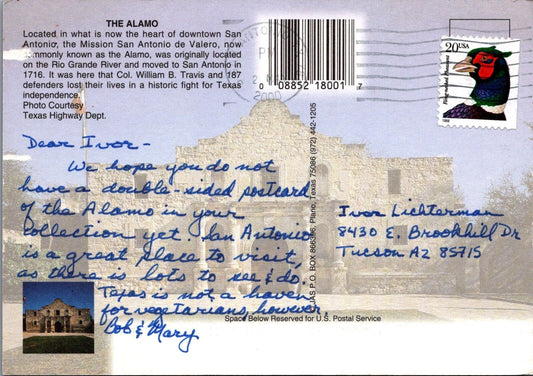 THE ALAMO
Located in what is now the heart of downtown San
Antonio, the Mission San Antonio de Valero, now
commonly known as the Alamo, was originally located
on the Rio Grande River and moved to San Antonio in
1716. It was here that Col. William B. Travis and 187
defenders lost their lives in a historic fight for Texas
independence.
Photo Courtesy
Texas Highway Dept.
0 08852 18001 7
PM
2000
20 USA
Dear Ivor -
We hope you do not
have a double-sided postcard
of the Alamo in your
collection yet. San Antonio
is a great place to visit,
as there is lots to see & do.
Texas is not a haven
for vegetarians, however.
Bob & Mary
P.O. BOX Plano, Texas 75086 (972) 442-1205
Ivor Lichterman
8430 E. Brookhill Dr
Tucson AZ 85715
Space Below Reserved for U.S. Postal Service